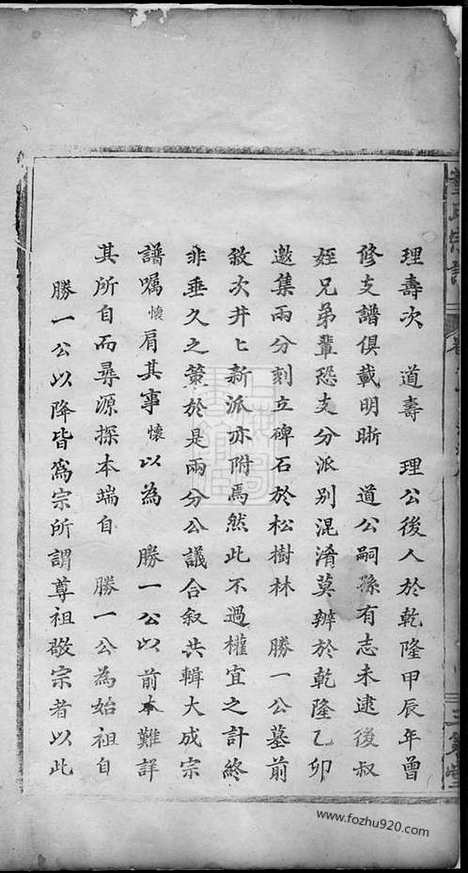 理壽次　道壽　理公後人於乾隆甲辰年曾
修支譜俱載明晣　道公嗣孫有志未逮後叔
姪兄弟輩恐支分派別混淆莫辨於乾隆乙卯
邀集兩分刻立碑石於松樹林　勝一公墓前
敘次井ヒ新派亦附焉然此不過權宜之計終
非垂久之策於是兩分公議合叙共輯大成宗
譜囑懷肩其事懷以為　勝一公以前本難詳
其所自而尋源探本端自　勝一公為始祖自
勝一公以降皆為宗所謂尊祖敬宗者以此
www.fozhu920.com